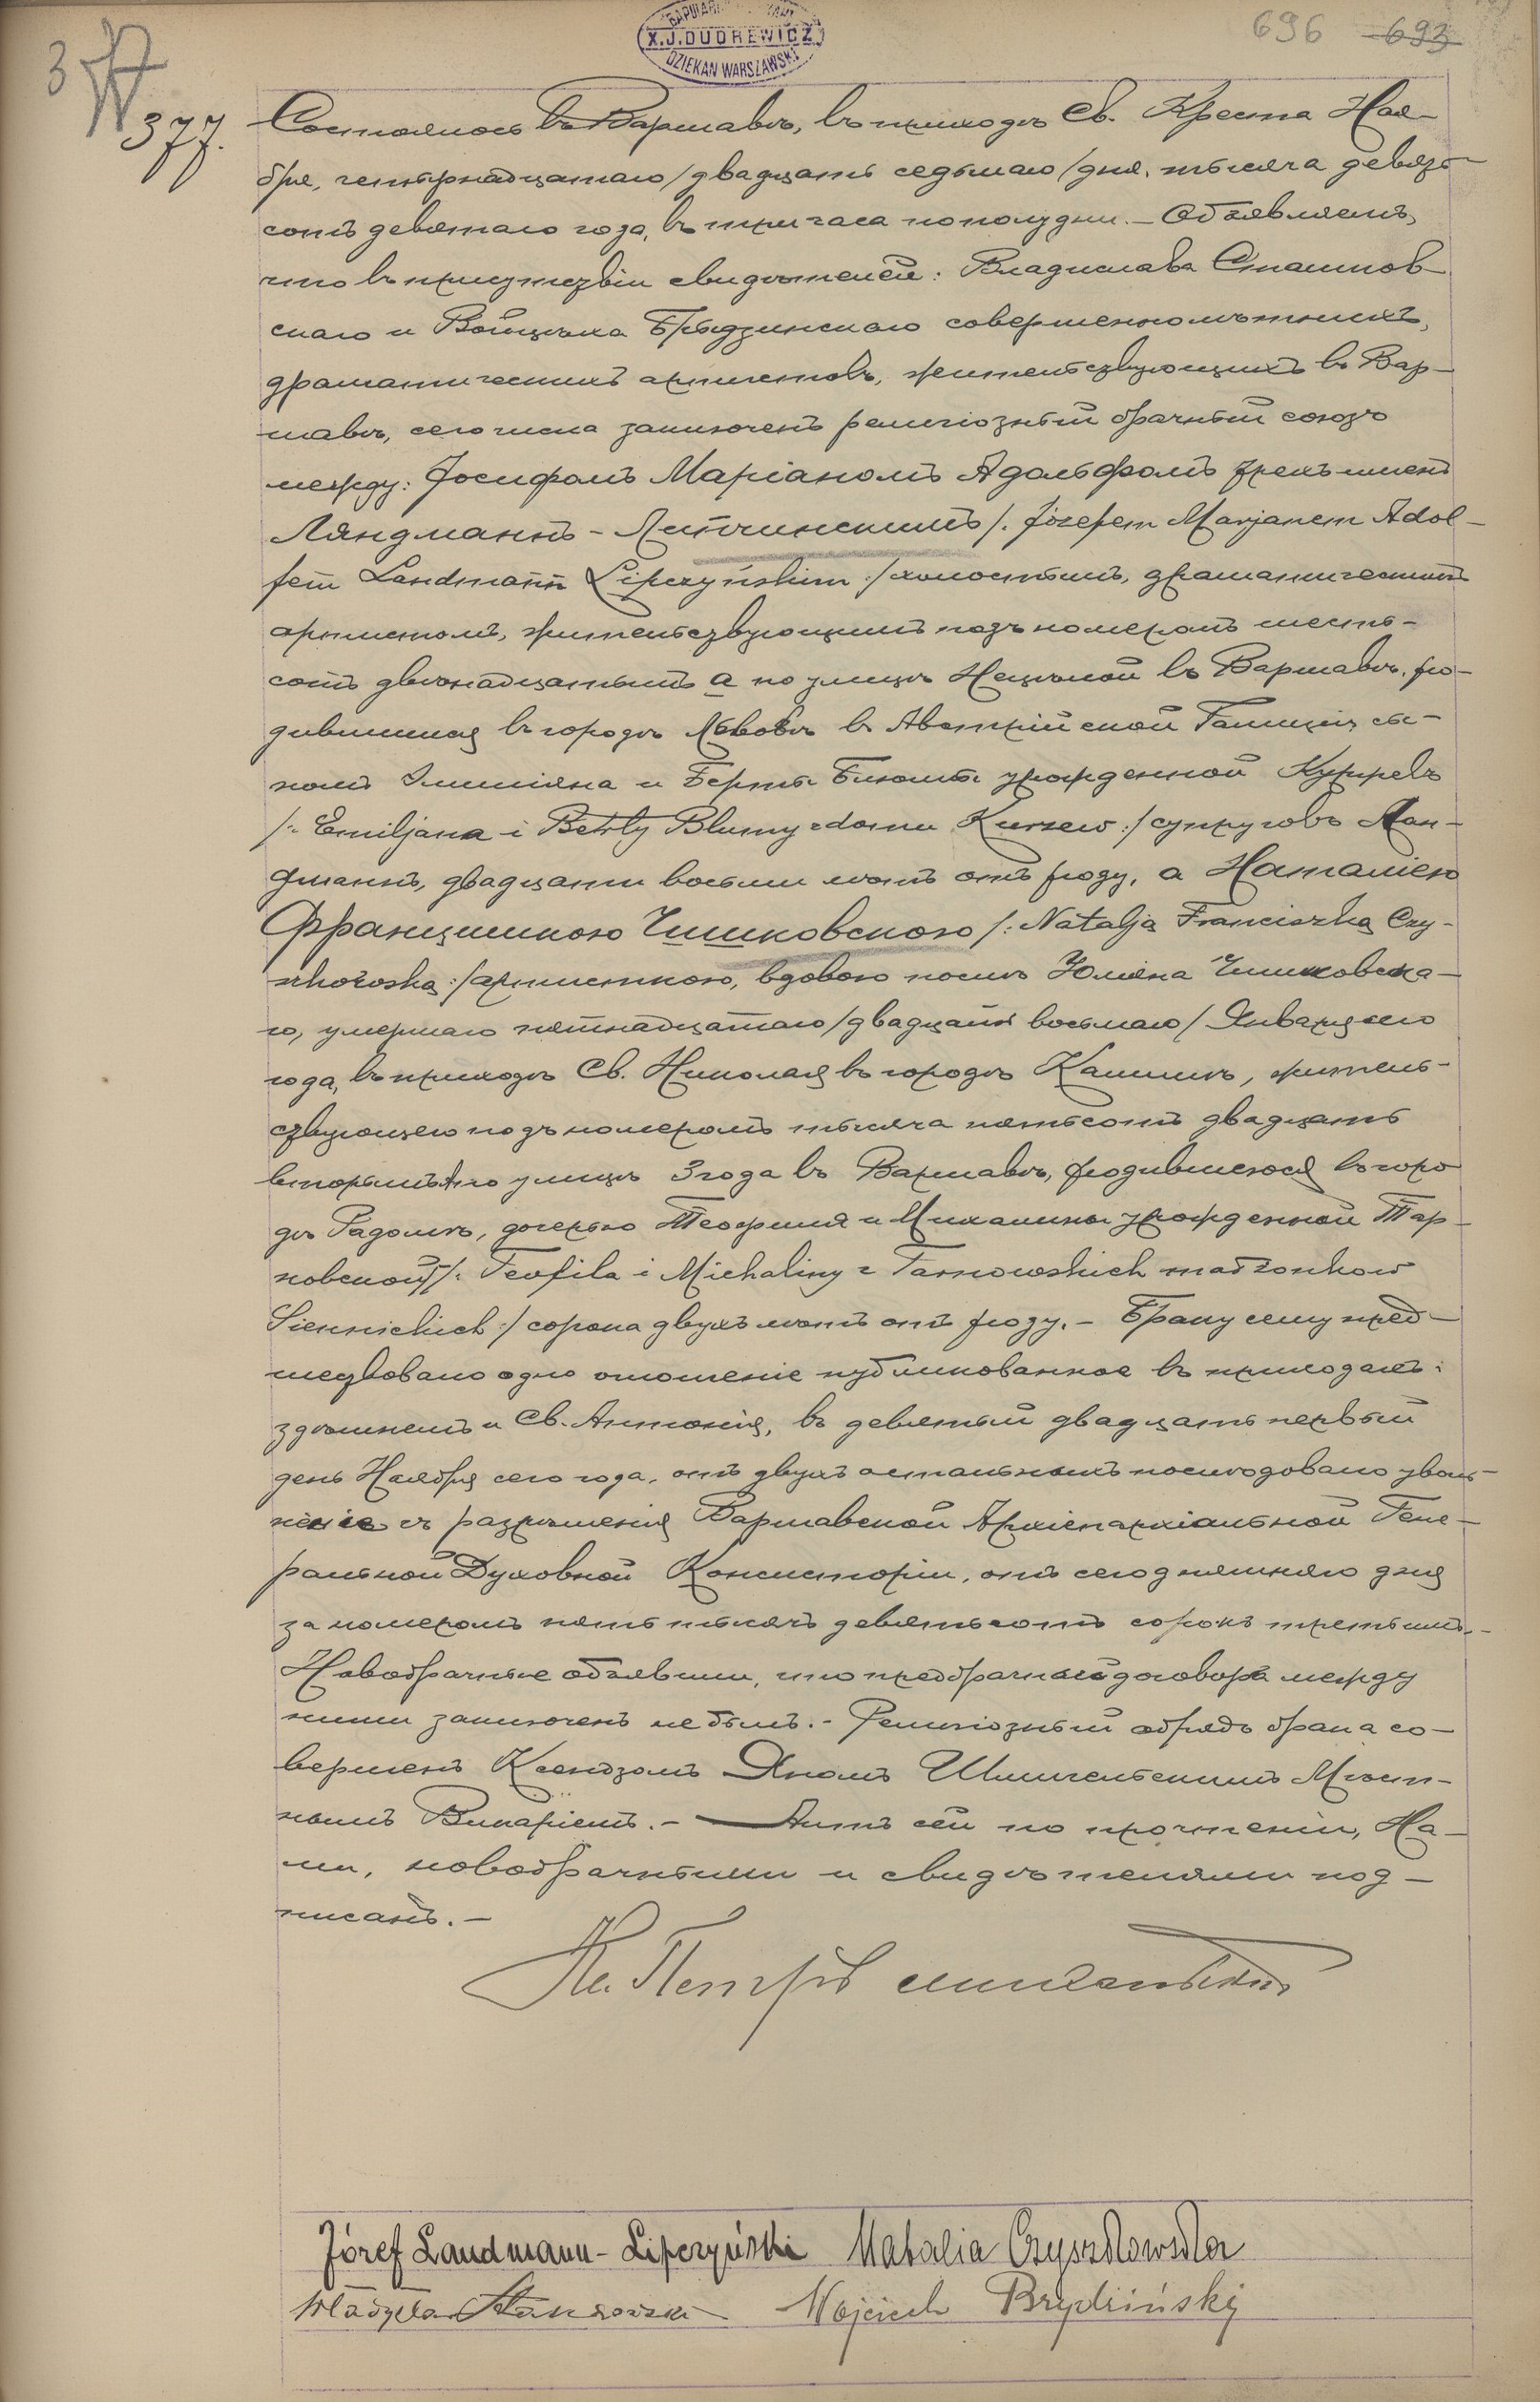 X.J.DUDREWICZ
DZIEKAN WARSZAWSKI
696 693
3
377.
Состоялось въ Варшавѣ, въ приходѣ Св. Креста Ноя-
бря, четырнадцатаго /двадцать седьмаго/ дня, тысяча девять-
сотъ девятаго года, въ три часа по полудни. – Объявляемъ,
что въ присутствіи свидѣтелей: Владислава Сташков-
скаго и Войцѣха Брыдзинскаго совершеннолѣтнихъ,
драматическихъ артистовъ, жительствующихъ въ Вар-
шавѣ, сего числа заключенъ религіозный брачный союзъ
между: Іосифомъ Маріаномъ Адольфомъ трехъ именъ
Ляндманнъ - Липчинскимъ /: Józefem Marjanem Adol-
fem Landmann Lipczyńskim :/ холостымъ, драматическимъ
артистомъ, жительствующимъ подъ номеромъ шесть-
сотъ двѣнадцатымъ а по улицѣ Нецѣлой въ Варшавѣ, ро-
дившимся въ городѣ Львовѣ въ Австрійской Галиціи, сы-
номъ Эмиліяна и Берты Блюмы урожденной Куржевъ
/: Emiljana i Berty Blumy z domu Kurzew :/ супруговъ Лан-
дманнъ, двадцати восьми лѣтъ отъ роду, а Наталіею
Францишкою Чишковскою /: Natalją Franciszką Czy-
szkowską :/ артисткою, вдовою послѣ Юліяна Чишковска-
го, умершаго пятнадцатаго /двадцать восьмаго/ Января сего
года, въ приходѣ Св. Николая въ городѣ Калишѣ, житель-
ствующею подъ номеромъ тысяча пятьсотъ двадцать
вторымъ А по улицѣ Згода въ Варшавѣ, родившеюся въ горо
дѣ Радомѣ, дочерью Теофиля и Михалины урожденной Тар-
новской /: Teofila i Michaliny z Tarnowskich małżonków
Siennickich :/ сорока двухъ лѣтъ отъ роду. – Браку сему пред-
шествовало одно оглошеніе публикованное въ приходахъ:
здѣшнемъ и Св. Антонія, въ девятый двадцать первый
день Ноября сего года, отъ двухъ остальныхъ послѣдовало уволь-
неніе съ разрѣшенія Варшавской Архіепархіальной Гене-
ральной Духовной Консисторіи, отъ сегодняшняго дня
за номеромъ пять тысячъ девятьсотъ сорокъ третьимъ. –
Новобрачные объявили, что предбрачнаго договора между
ними заключенъ не былъ. – Религіозный обрядъ брака со-
вершенъ Ксендзомъ Яномъ Шмигельскимъ Мѣст-
нымъ Викаріемъ. – Актъ сей по прочтеніи, На-
ми, новобрачными и свидѣтелями под-
писанъ. –
Józef Landmann-Lipczyński Natalia Czyszkowska
Władysław Staszkowski Wojciech Brydziński